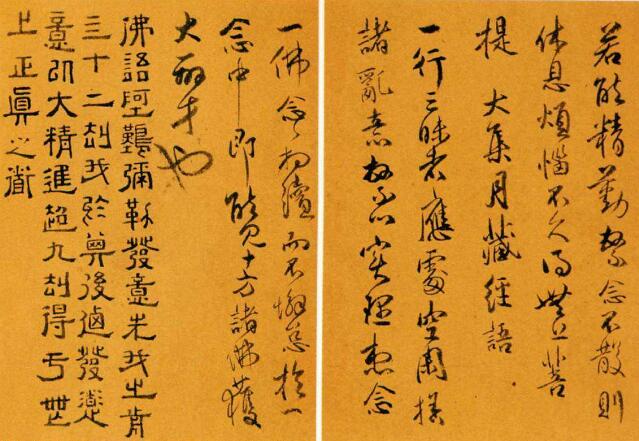 若能精勤繫念不散則
休息煩惱不久得無上菩
提 大集月藏經語
一行三昧者應處空閑捨
諸亂意繫心實理想念
一佛念々相續而不懈怠於一
念中即能見十方諸佛獲
大辯才也
佛語阿難彌勒發意先我之前
三十二劫我於其後乃發道
意以大精進超九劫得于無
上正真之道